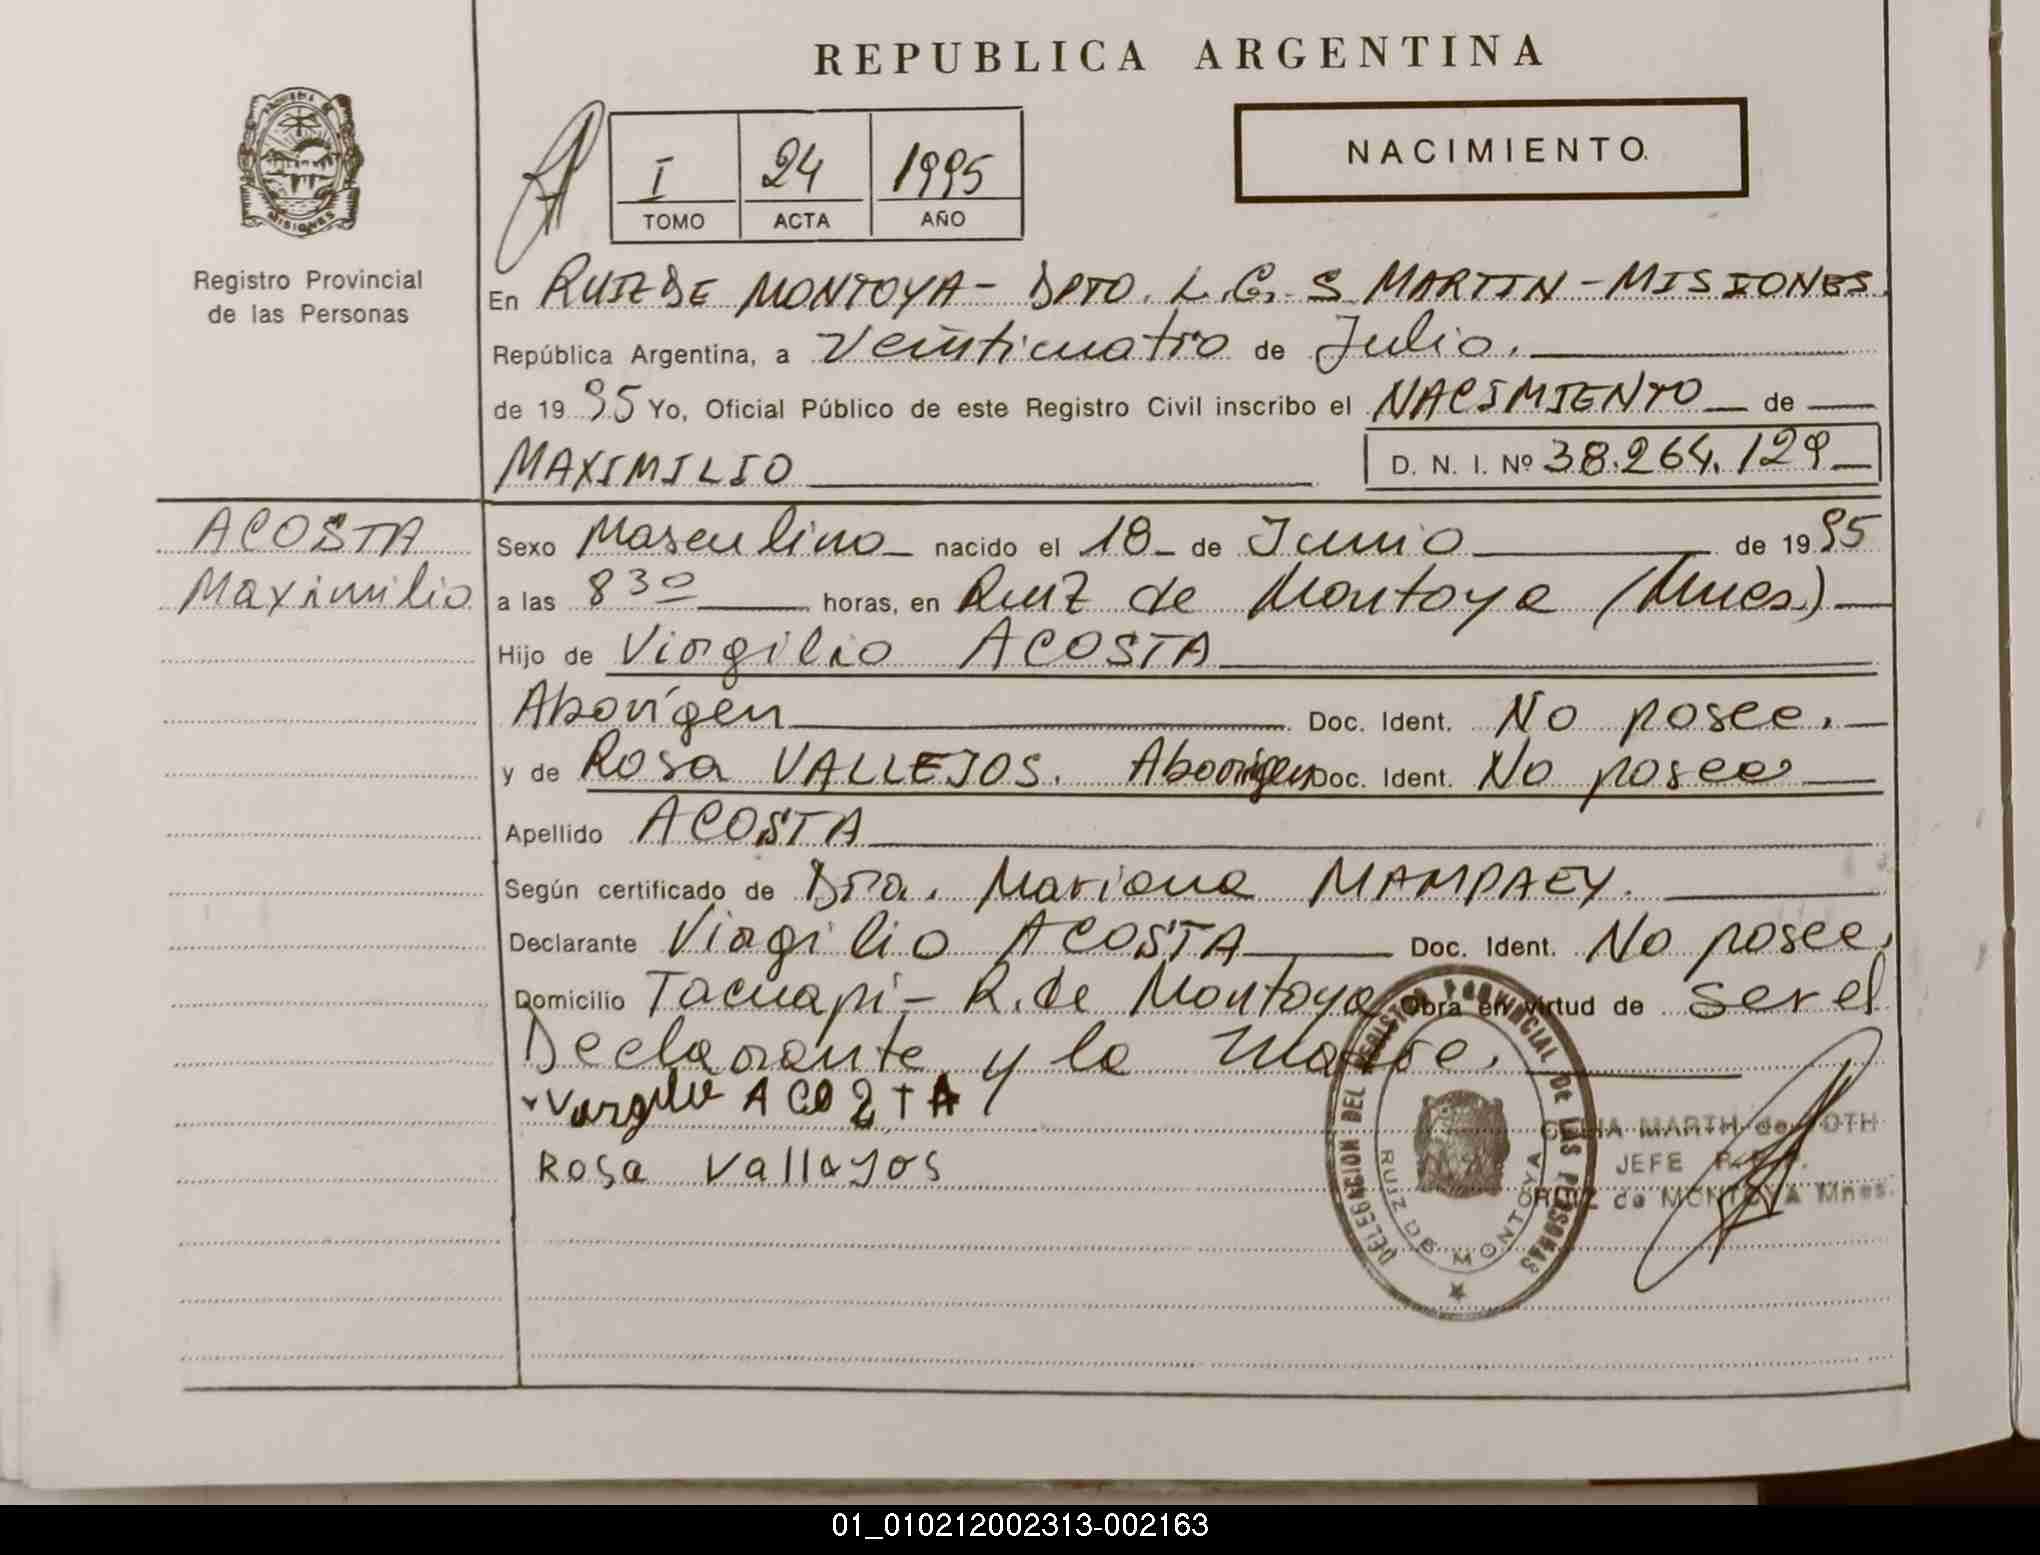 REPUBLICA ARGENTINA
I 24 1995
TOMO ACTA AÑO
NACIMIENTO.
MISIONES
Registro Provincial
de las Personas
En RUIZ DE MONTOYA - DPTO. L.G. S MARTIN - MISIONES.
República Argentina, a Veinticuatro de Julio.
de 1995 Yo, Oficial Público de este Registro Civil inscribo el NACIMIENTO de
MAXIMILIO D. N. I. Nº 38.264.129
ACOSTA
Maximilio
Sexo Masculino nacido el 18 de Junio de 1995
a las 8 30 horas, en Ruiz de Montoya (Mnes.)
Hijo de Virgilio ACOSTA
Aborígen Doc. Ident. No posee.
y de Rosa VALLEJOS. Aborigen Doc. Ident. No posee
Apellido ACOSTA
Según certificado de Dra. Mariana MAMPAEY.
Declarante Virgilio ACOSTA Doc. Ident. No posee.
Domicilio Tacuapi - R. de Montoya Obra en virtud de ser el
Declarante y la Madre.
Virgilio ACO2TA
Rosa Vallejos
DELEGACION DEL REGISTRO PROVINCIAL DE LAS PERSONAS
RUIZ DE MONTOYA
MARTH de ROTH
JEFE
RUIZ de MONTOYA Mnes.
01_010212002313-002163